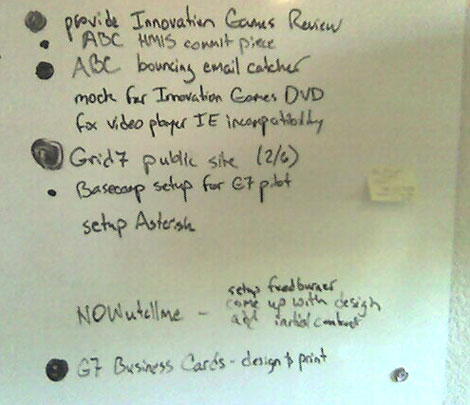 provide Innovation Games Review
ABC HMIS commit piece
ABC bouncing email catcher
mock for Innovation Games DVD
fix video player IE incompatibility
Grid7 public site (2/6)
Basecamp setup for G7 pilot
setup Asterisk
NOWutellme - setup feedburner
come up with design
add initial content
G7 Business Cards - design & print